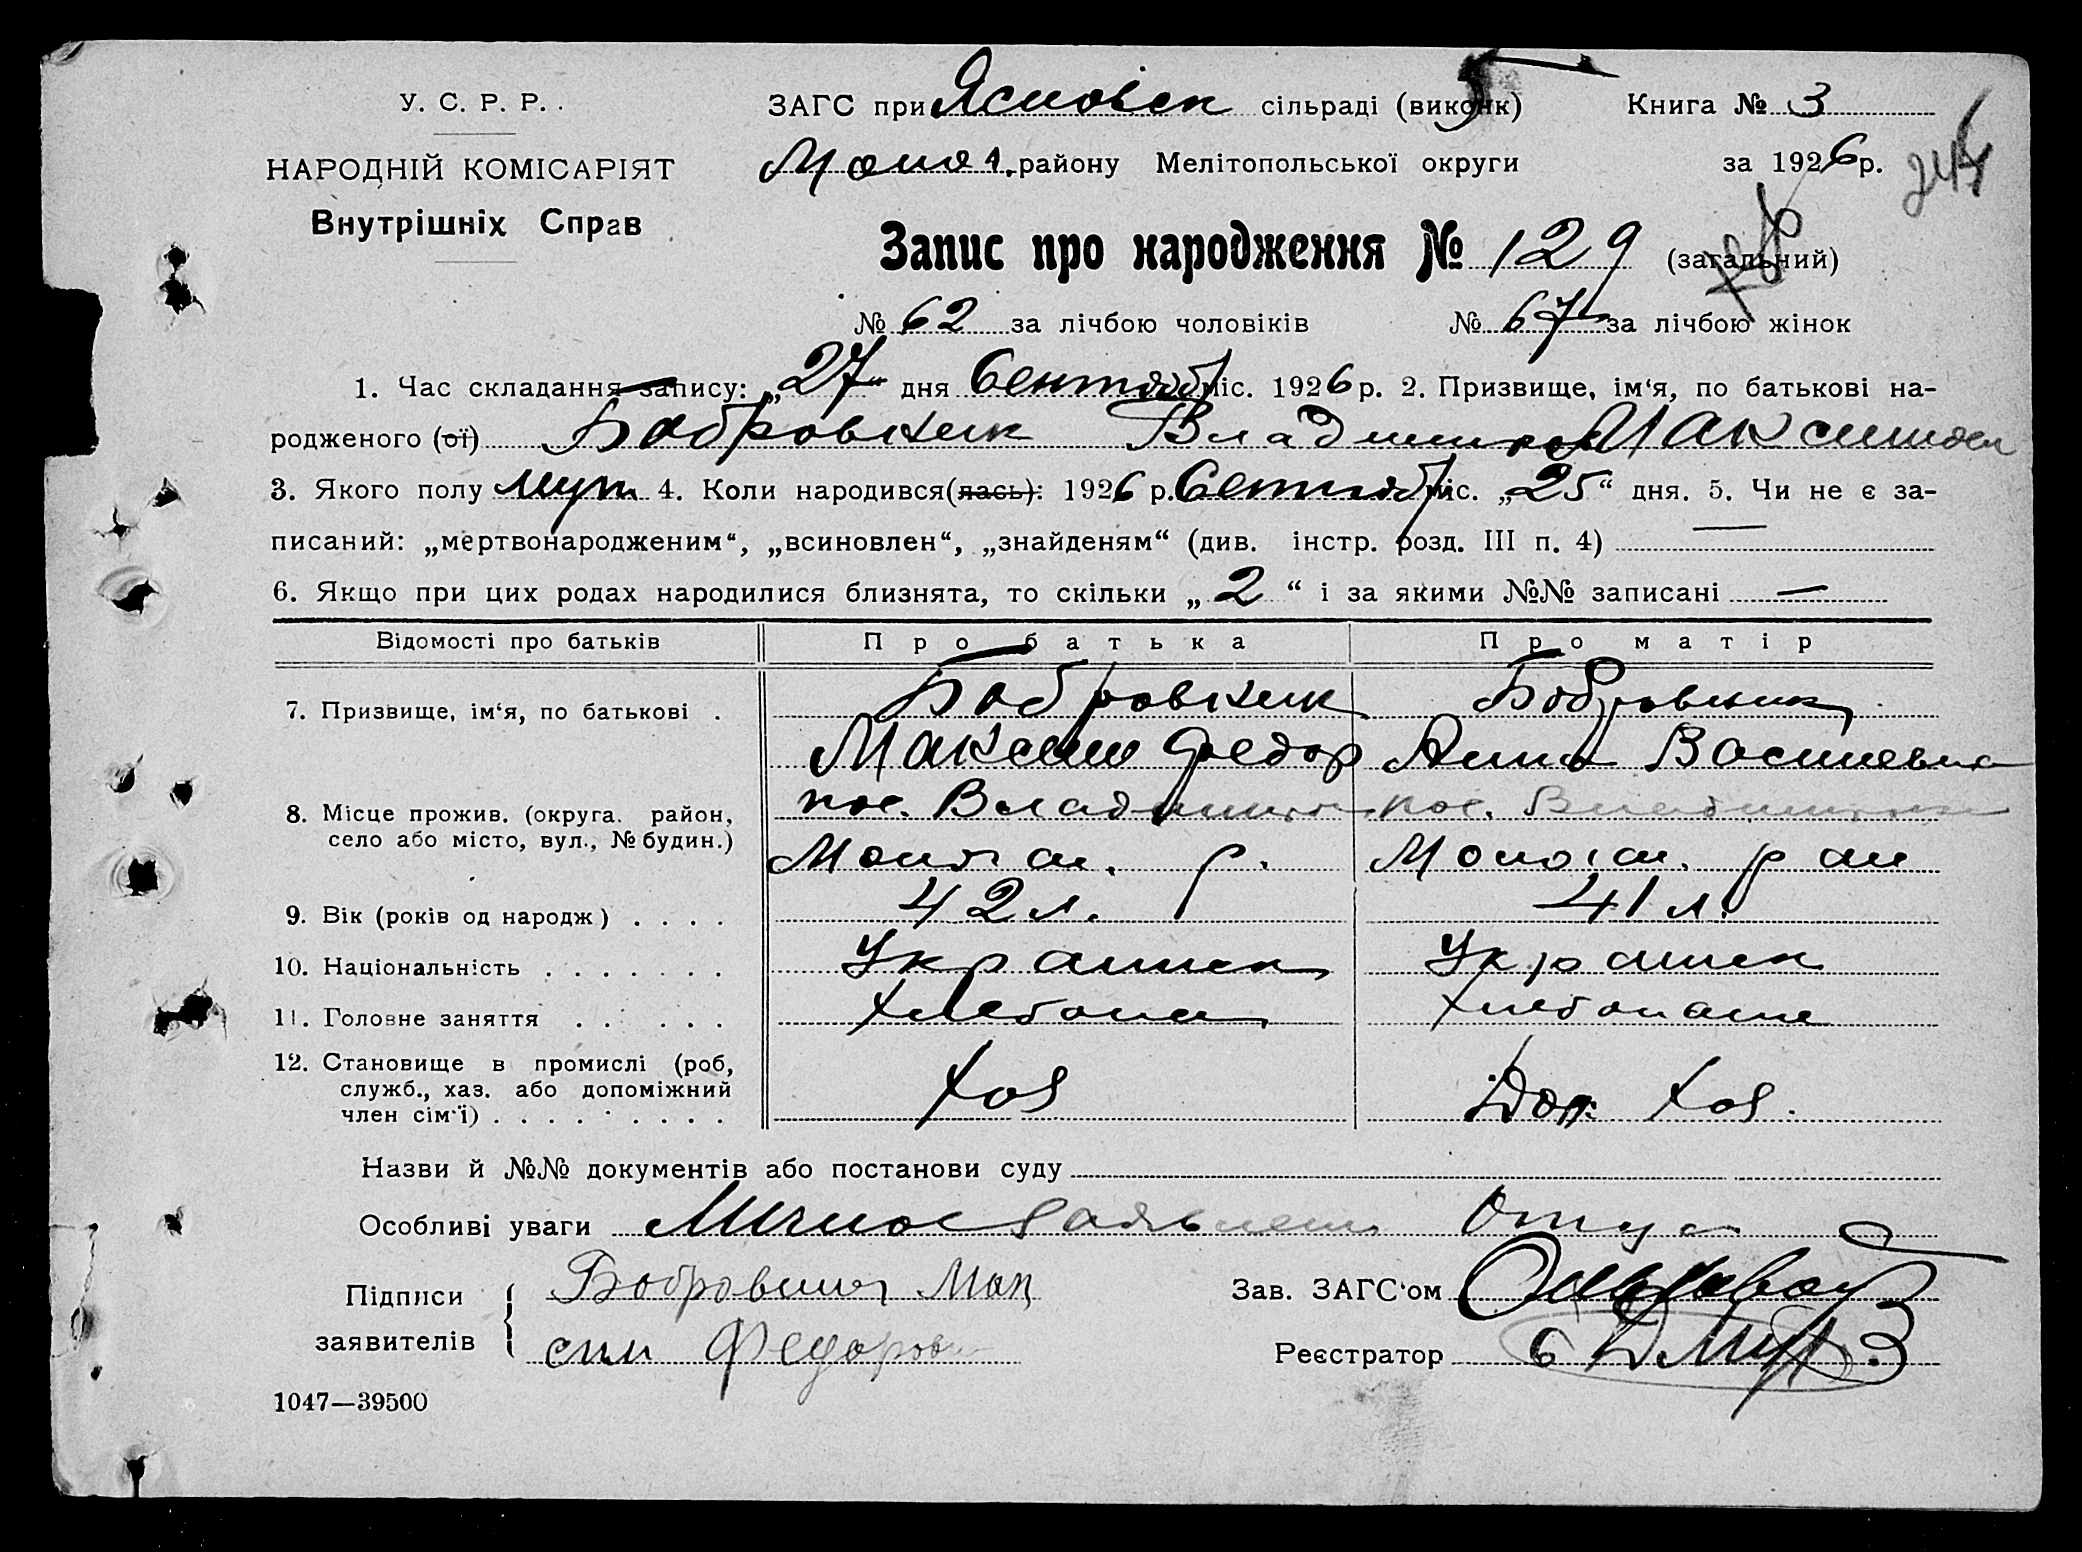 У. С. Р. Р.
НАРОДНІЙ КОМІСАРІЯТ
Внутрішніх Справ
ЗАГС при сільраді (виконк) Книга № 3
району Мелітопольської округи за 1926 р.
Запис про народження № 129 (загальний)
№ 62 за лічбою чоловіків № 67 за лічбою жінок
1. Час складання запису: „27“ дня Сентяб міс. 1926 р. 2. Призвище, ім‘я, по батькові на-
родженого (ої) Бобровник Владимир Максимов
3. Якого полу муж. 4. Коли народився(лась): 1926 р. Сентяб міс. „25“ дня. 5. Чи не є за-
писаний: „мертвонародженим“, „всиновлен“, „знайденям“ (див. інстр. розд. III п. 4) —
6. Якщо при цих родах народилися близнята, то скільки „2“ і за якими №№ записані —
Відомості про батьків Про батька Про матір
7. Призвище, ім‘я, по батькові . Бобровник Бобровник
Максим Федор Анна Васильевна
8. Місце прожив. (округа. район, пос. Владимировка пос. Владимировка
село або місто, вул., № будин.)
9. Вік (років од народж) . . . . 42 л. 41 л.
10. Національність . . . . . . . Украинец Украинка
11. Головне заняття . . . . . . Хлебопаш Хлебопаше
12. Становище в промислі (роб,
служб., хаз. або допоміжний
член сім‘ї) . . . . . . . . . Хоз Доп. Хоз.
Назви й №№ документів або постанови суду
Особливі уваги Личное заявление Отца
Підписи Бобровник Мак Зав. ЗАГС‘ом
заявителів сим Федоров Реєстратор
1047—39500